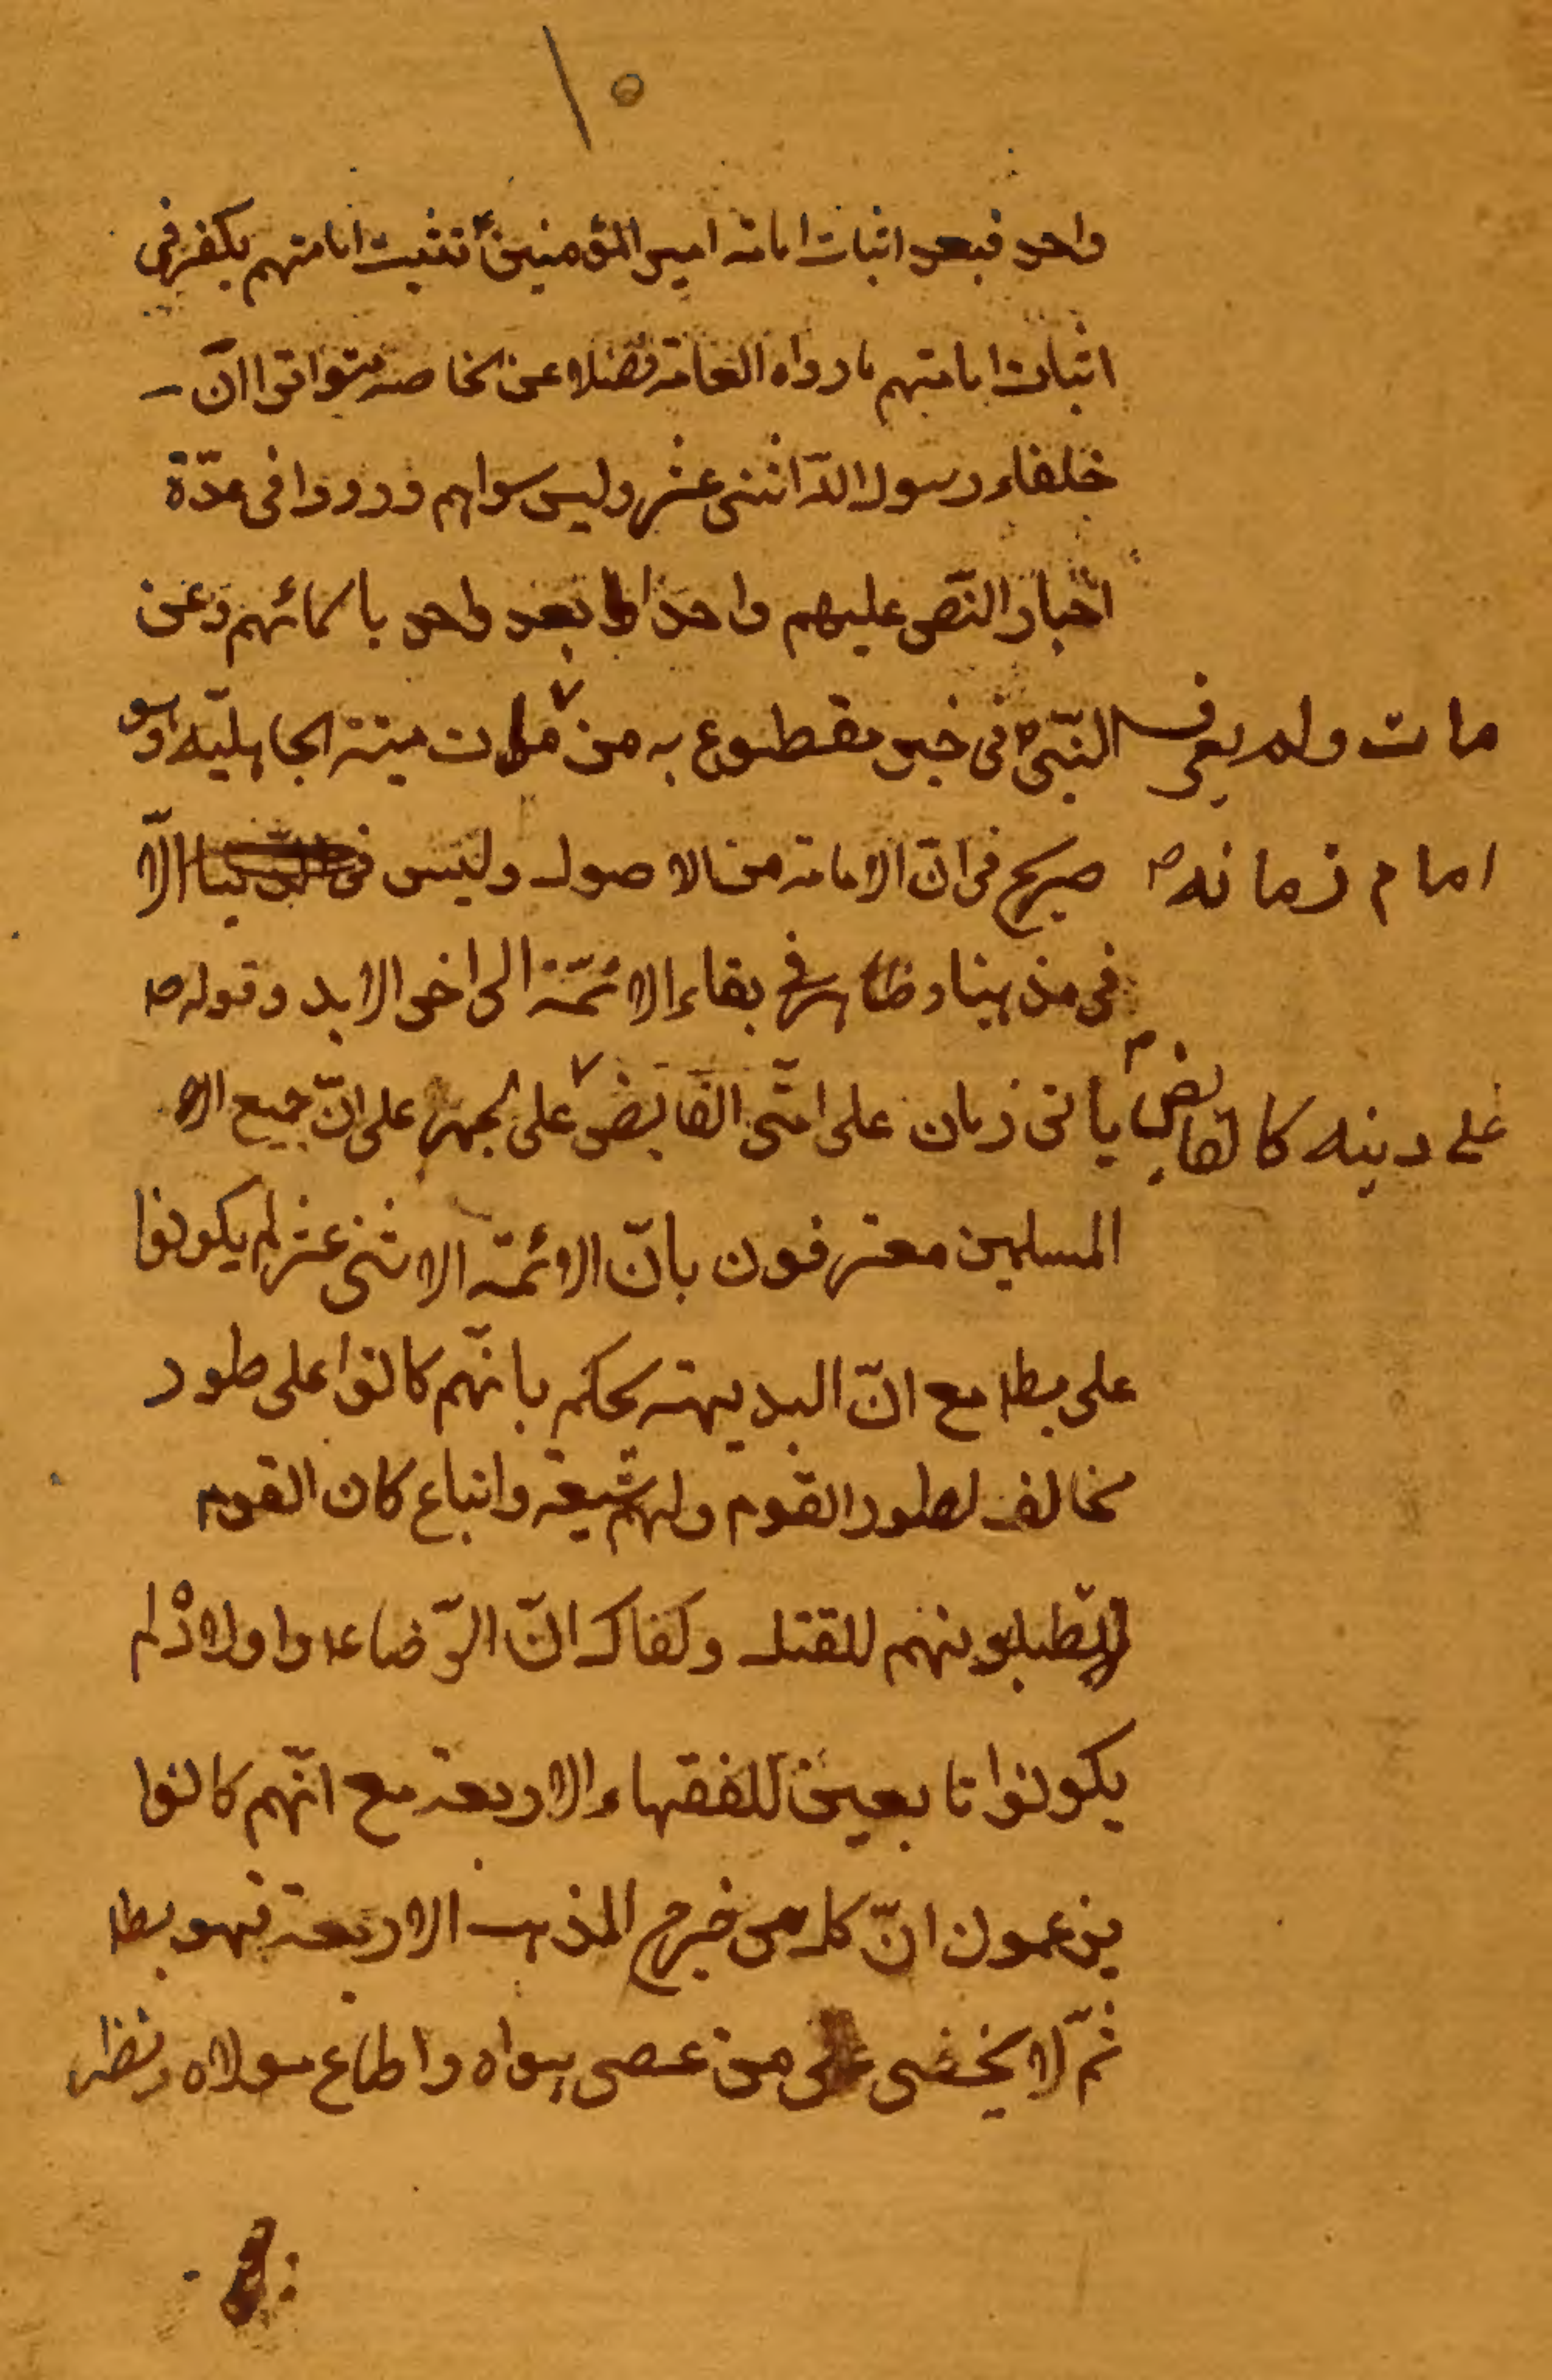 ١٥
واحد فبعد اثبات امامة امير المؤمنينؑ تثبت امامتهم يكفر في
اثبات امامتهم ما رواه العامة فضلا عن الخاصة متواترا انّ
خلفاء رسول الله اثنى عشر وليس سواهم ورووا فى عدّة
اخبار النّص عليهم واحدا بعد واحد باسمائهم وعن
النّبىّ ص فى خبر مقطوع به من مات ميتة الجاهليّة وهو
مات ولم يعرف
امام زمانه ص
صريح فى انّ الامامة من الاصول وليس فى الّا
فى مذهبنا وظاهر فى بقاء الائمّة الى اخر الابد وقوله ص
يأتى زمان على امّتى القابض على الجمر على انّ جميع الا
على دينه كالقابض ص
المسلمين معترفون بانّ الائمّة الاثنى عشر لم يكونوا
على بطا مع انّ البديهة يحكم بانّهم كانوا على طور
مخالف لطور القوم ولهم شيعة واتباع كان القوم
يطلبونهم للقتل وكفاك انّ الرّضا ع واولاده لم
يكونوا تابعين للفقهاء الاربعة مع انّهم كانوا
يزعمون انّ كل من خرج المذهب الاربعة فهو بطا
ثمّ لا يخفى على من عصى هواه واطاع مولاه ونظر